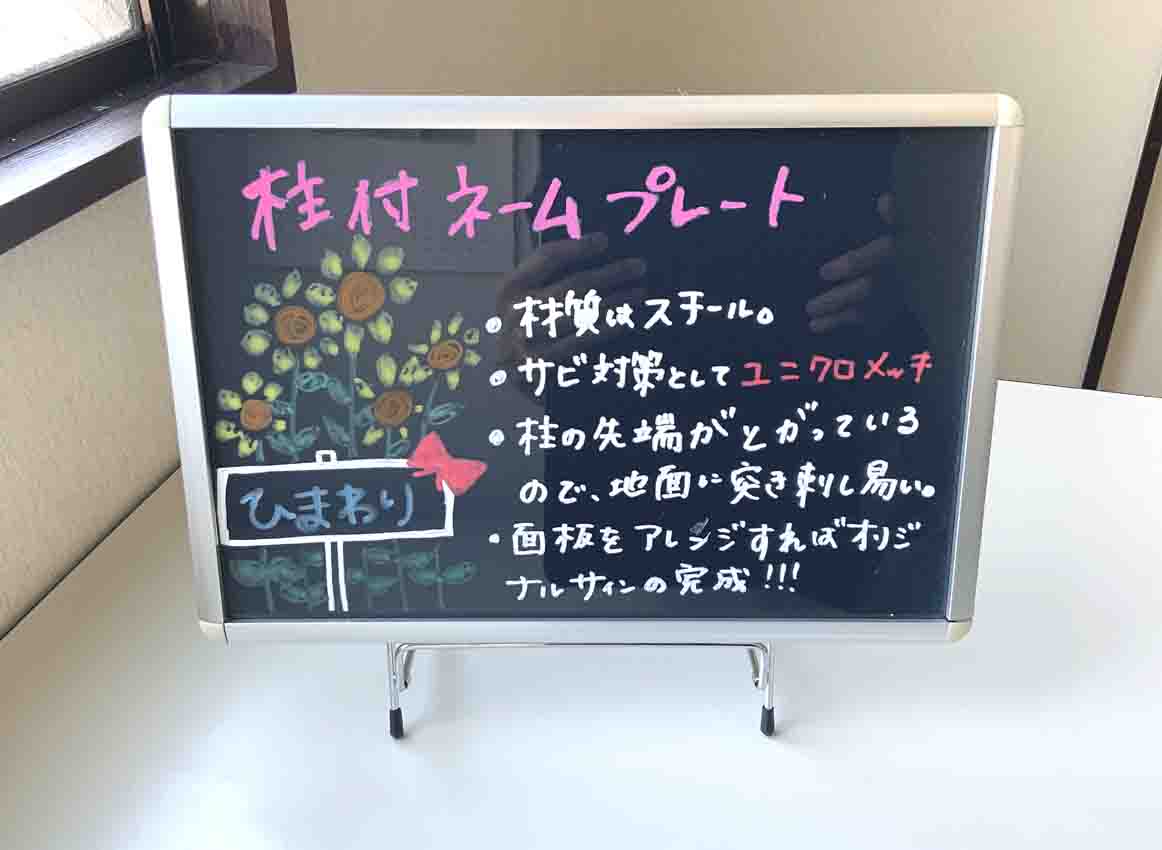 柱付ネームプレート
・材質はスチール。
・サビ対策としてユニクロメッキ
・柱の先端がとがっている
ので、地面に突き刺し易い。
・面板をアレンジすればオリジ
ナルサインの完成!!!
ひまわり